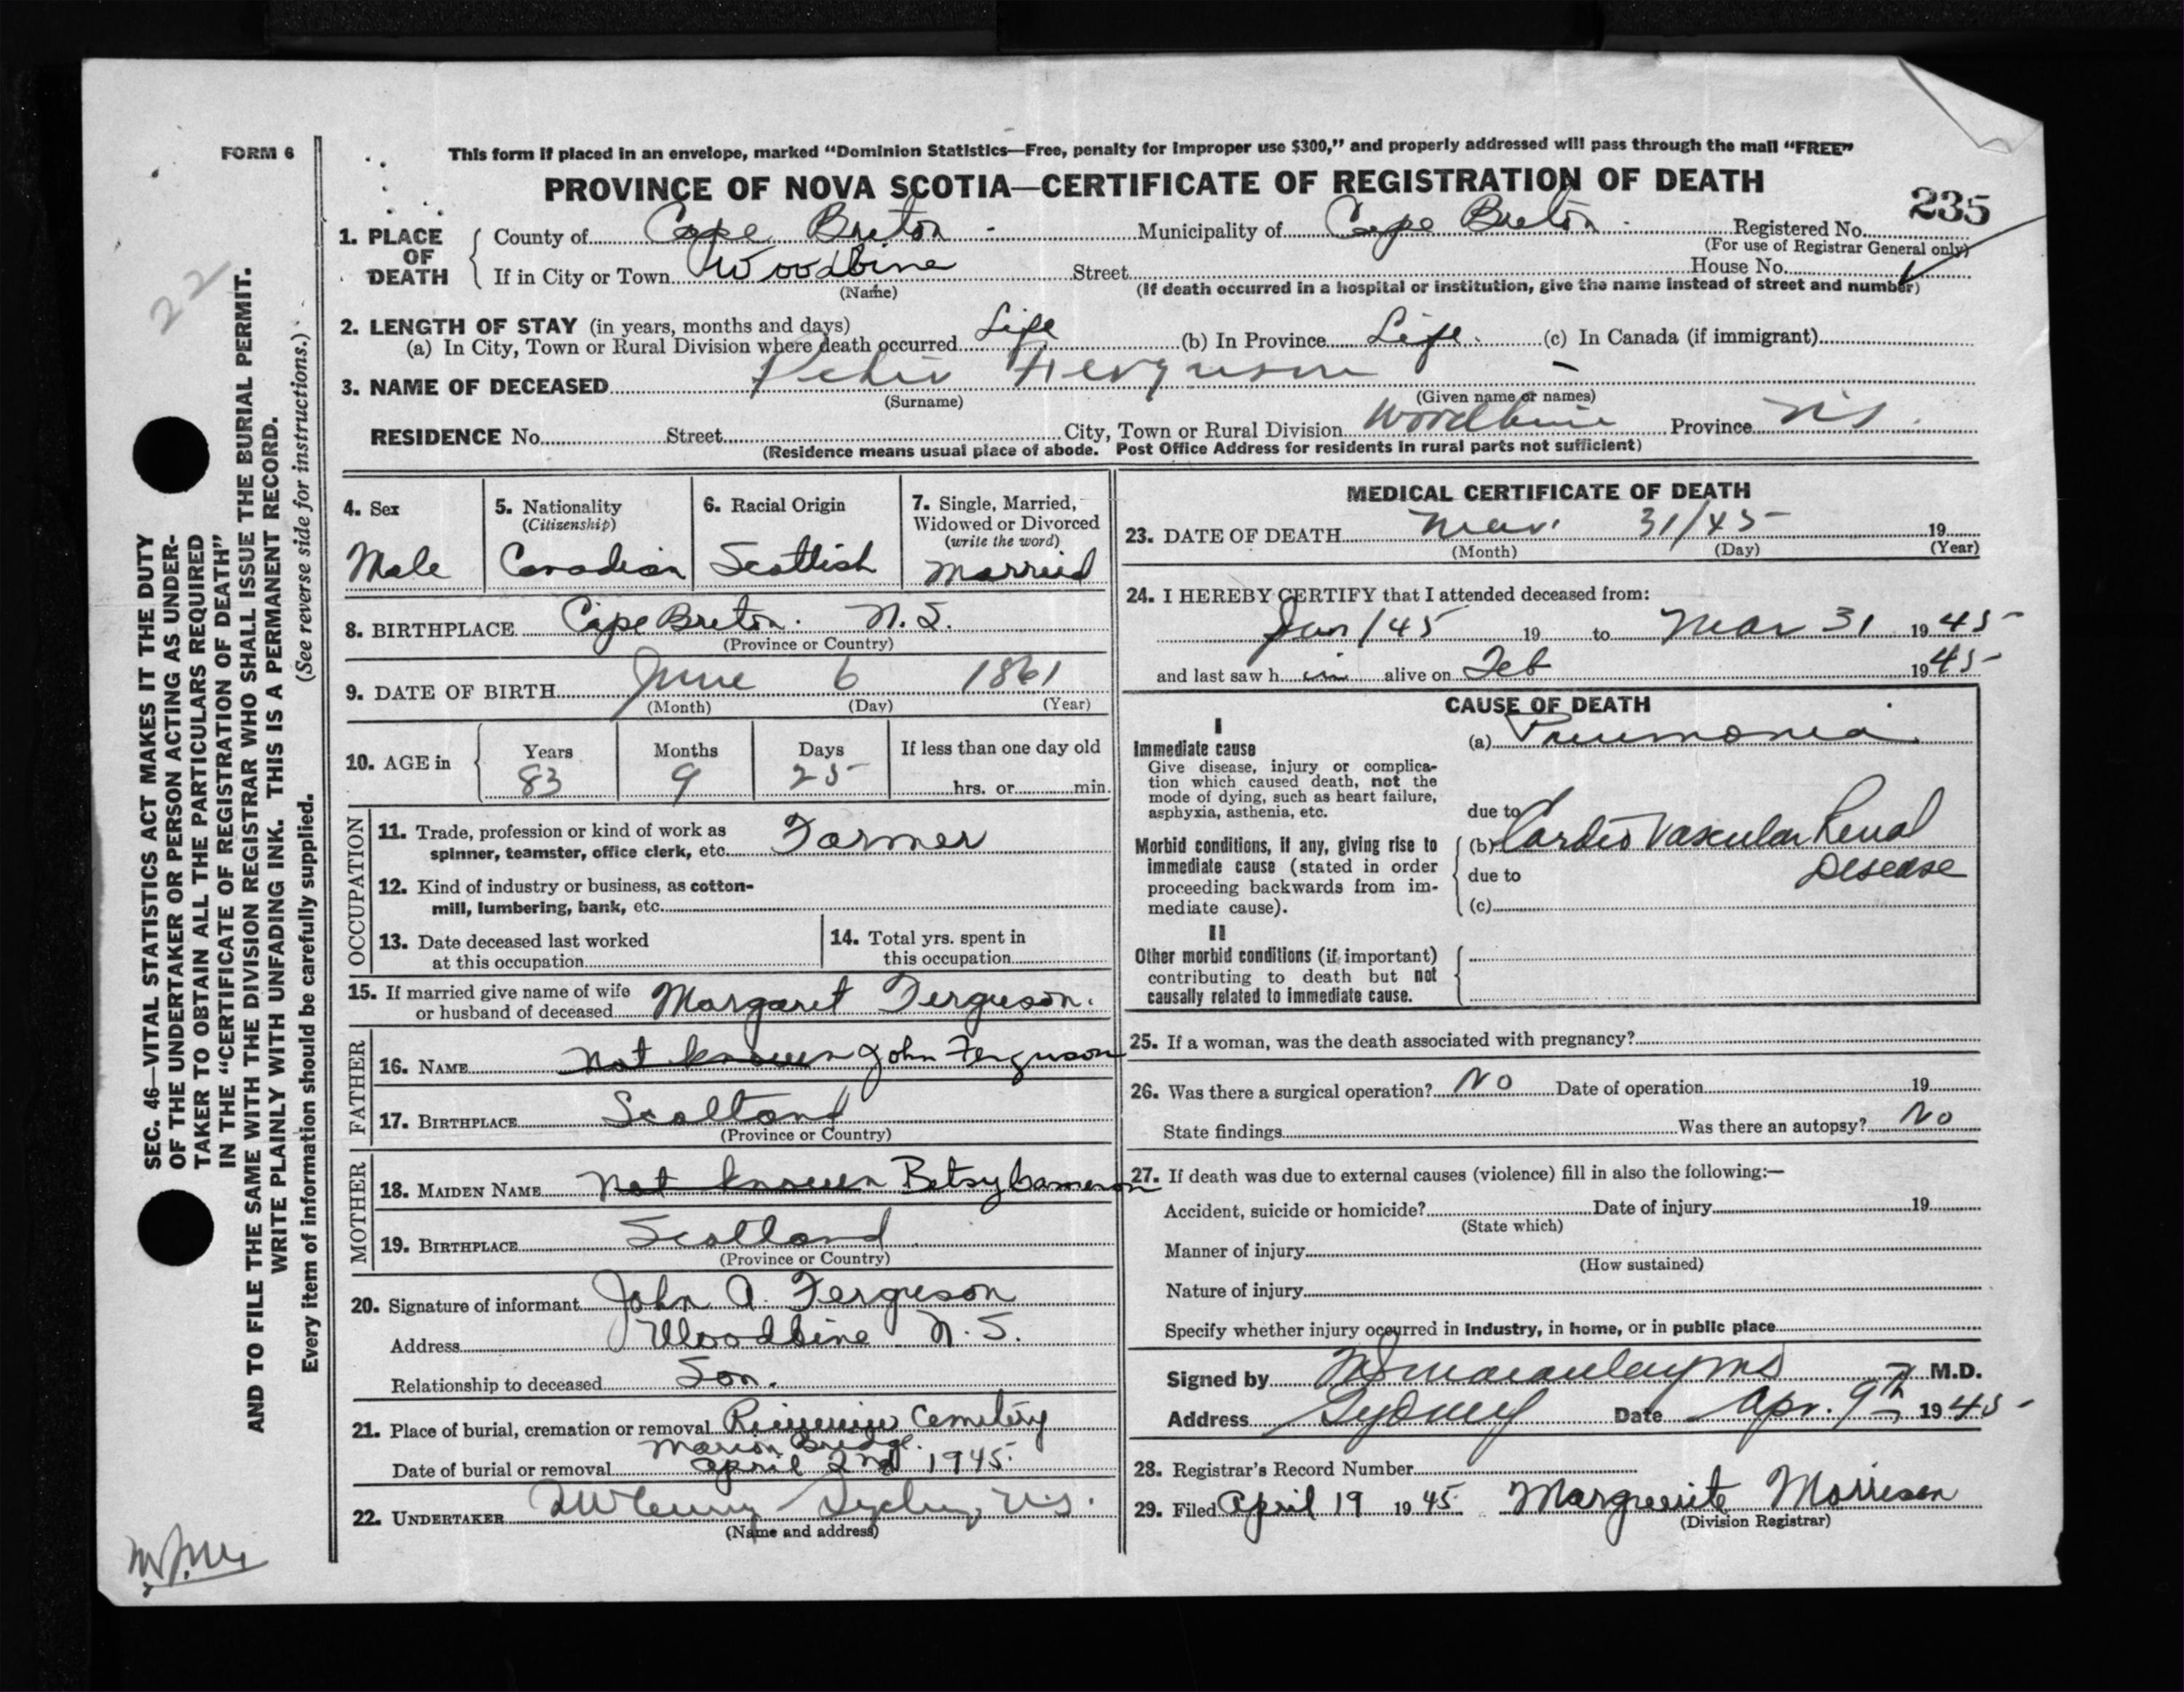 FORM 6
This form if placed in an envelope, marked "Dominion Statistics—Free, penalty for improper use $300," and properly addressed will pass through the mail "FREE"
PROVINCE OF NOVA SCOTIA—CERTIFICATE OF REGISTRATION OF DEATH
235
1. PLACE OF DEATH
County of Cape Breton Municipality of Cape Breton Registered No.
(For use of Registrar General only)
If in City or Town Woodbine Street House No.
(Name) (If death occurred in a hospital or institution, give the name instead of street and number)
2. LENGTH OF STAY (in years, months and days)
(a) In City, Town or Rural Division where death occurred Life (b) In Province Life (c) In Canada (if immigrant)
3. NAME OF DECEASED Peter Ferguson
(Surname) (Given name or names)
RESIDENCE No. Street City, Town or Rural Division Woodbine Province N.S.
(Residence means usual place of abode. Post Office Address for residents in rural parts not sufficient)
4. Sex
Male
5. Nationality
(Citizenship)
Canadian
6. Racial Origin
Scottish
7. Single, Married,
Widowed or Divorced
(write the word)
Married
8. BIRTHPLACE Cape Breton. N.S.
(Province or Country)
9. DATE OF BIRTH June 6 1861
(Month) (Day) (Year)
10. AGE in
Years Months Days If less than one day old
83 9 25 hrs. or min.
OCCUPATION
11. Trade, profession or kind of work as
spinner, teamster, office clerk, etc. Farmer
12. Kind of industry or business, as cotton-
mill, lumbering, bank, etc.
13. Date deceased last worked
at this occupation
14. Total yrs. spent in
this occupation
15. If married give name of wife
or husband of deceased Margaret Ferguson.
FATHER
16. NAME Not known John Ferguson
17. BIRTHPLACE Scotland
(Province or Country)
MOTHER
18. MAIDEN NAME Not known Betsy Cameron
19. BIRTHPLACE Scotland
(Province or Country)
20. Signature of informant John A. Ferguson
Address Woodbine N.S.
Relationship to deceased Son.
21. Place of burial, cremation or removal Cemetery
Marion Bridge.
Date of burial or removal April 2nd 1945.
22. UNDERTAKER Sydney, N.S.
(Name and address)
MEDICAL CERTIFICATE OF DEATH
23. DATE OF DEATH Mar. 31/45 19
(Month) (Day) (Year)
24. I HEREBY CERTIFY that I attended deceased from:
Jan/45 19 to Mar 31 1945
and last saw h im alive on Feb 1945
CAUSE OF DEATH
I
Immediate cause
Give disease, injury or complica-
tion which caused death, not the
mode of dying, such as heart failure,
asphyxia, asthenia, etc.
(a) Pneumonia
due to
Morbid conditions, if any, giving rise to
immediate cause (stated in order
proceeding backwards from im-
mediate cause).
(b) Cardio Vascular Renal
Disease
due to
(c)
II
Other morbid conditions (if important)
contributing to death but not
causally related to immediate cause.
25. If a woman, was the death associated with pregnancy?
26. Was there a surgical operation? No Date of operation 19
State findings Was there an autopsy? No
27. If death was due to external causes (violence) fill in also the following:—
Accident, suicide or homicide? Date of injury 19
(State which)
Manner of injury
(How sustained)
Nature of injury
Specify whether injury occurred in industry, in home, or in public place
Signed by Macaulay MD M.D.
Address Sydney Date Apr. 9th 1945
28. Registrar's Record Number
29. Filed April 19 1945. Marguerite Morrison
(Division Registrar)
22
SEC. 46—VITAL STATISTICS ACT MAKES IT THE DUTY
OF THE UNDERTAKER OR PERSON ACTING AS UNDER-
TAKER TO OBTAIN ALL THE PARTICULARS REQUIRED
IN THE "CERTIFICATE OF REGISTRATION OF DEATH"
AND TO FILE THE SAME WITH THE DIVISION REGISTRAR WHO SHALL ISSUE THE BURIAL PERMIT.
WRITE PLAINLY WITH UNFADING INK. THIS IS A PERMANENT RECORD.
Every item of information should be carefully supplied. (See reverse side for instructions.)